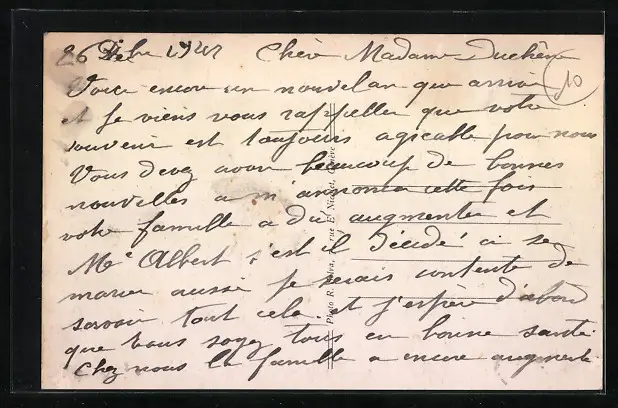 26 Xbre 1942 Chère Madame Duchêne
10
Voice encore un nouvel an qui arrive
et je viens vous rappeller que votre
souvenir est toujours agreable pour nous
Vous devez avoir beaucoup de bonnes
nouvelles a m'annoncer cette fois
votre famille a du augmenter et
Mr Albert s'est il décidé a se
marier aussi je serais contente de
savoir tout cela et j'espère d'abord
que vous soyez tous en bonne santé
Chez nous la famille a encore augmenté
Photo R. E. rue E. Nicolet, Genève